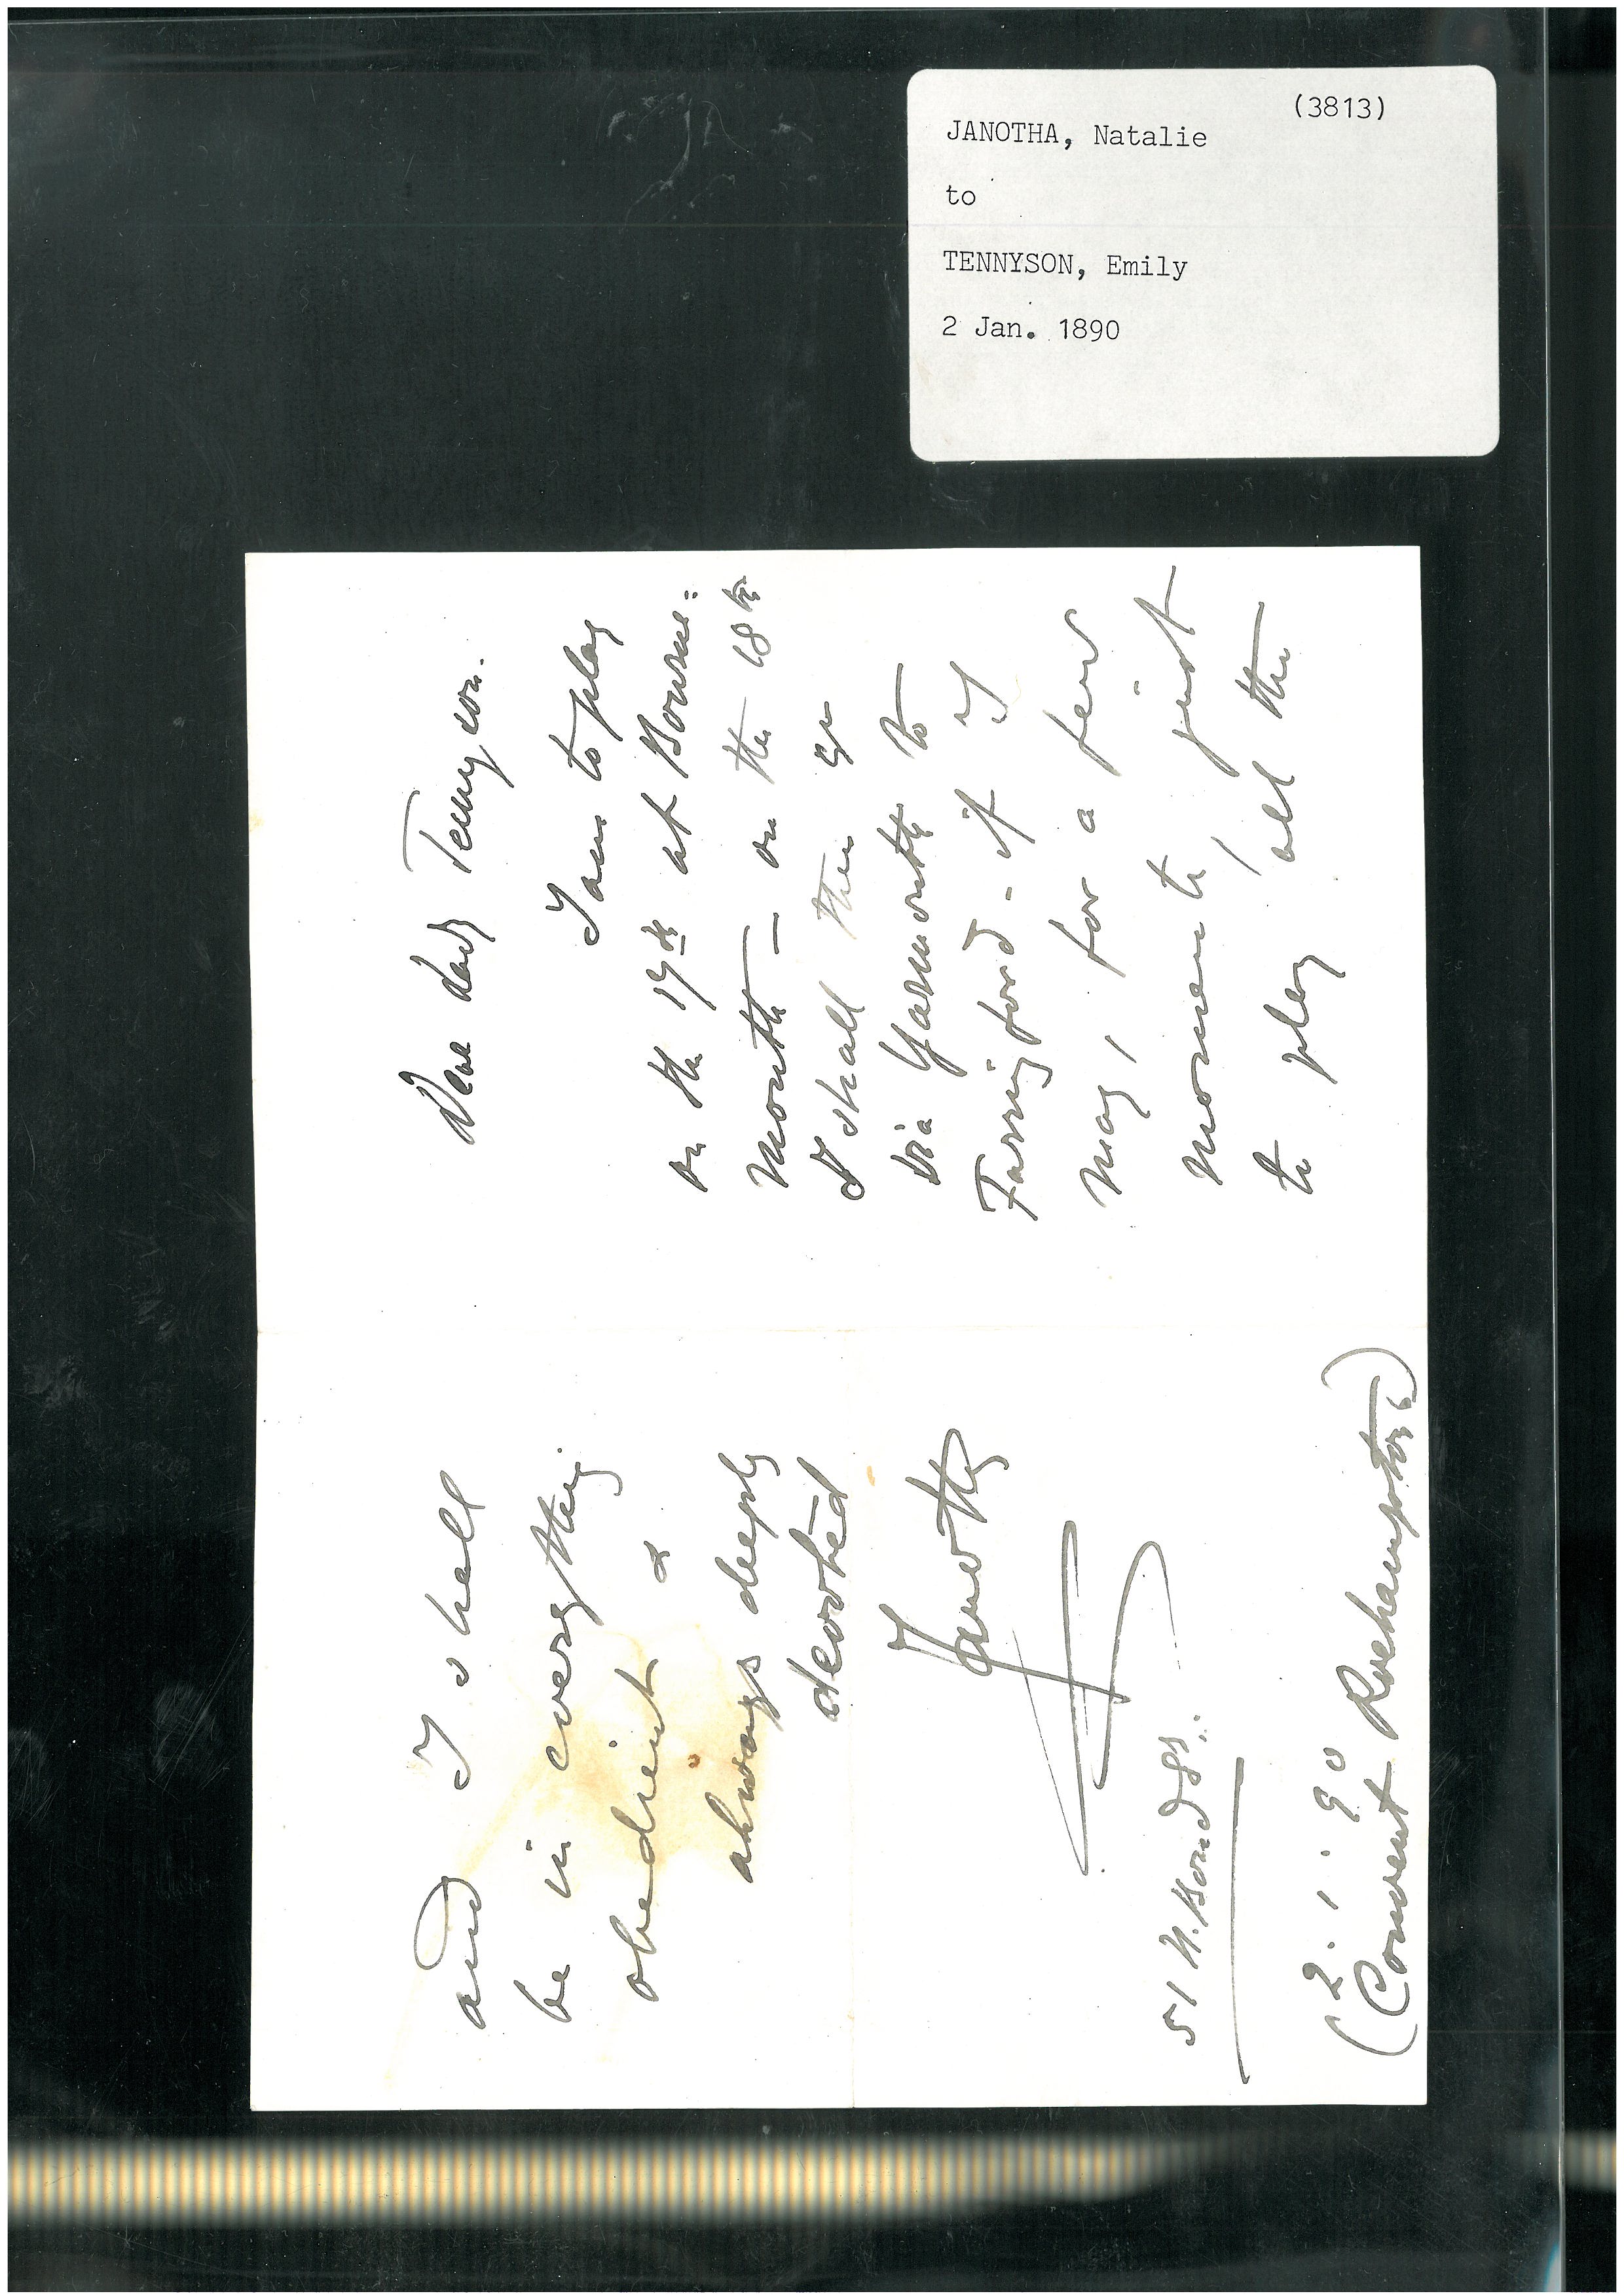 (3813)
JANOTHA, Natalie
to
TENNYSON, Emily
2 Jan. 1890
Dear Lady Tennyson.
I am to play
on the 17th at Bourne:
mouth – on the 18th
I shall then go
via Yarmouth to
Farringford – if I
may, for a few
moments just
to play all the
and I shall
be in everything
obedient &
always deeply
devoted
Janotha
51 N. Bond St:
(2. 1. 90
Convent Roehampton)